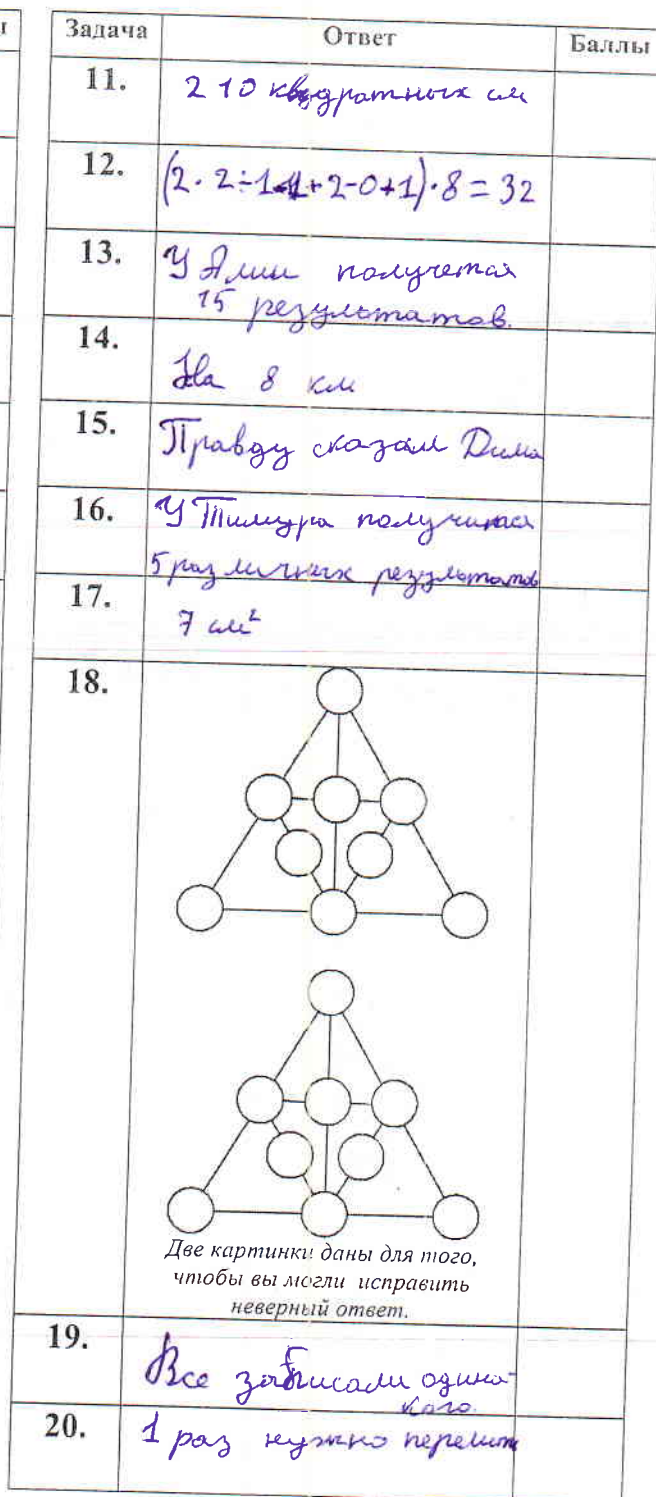 Задача Ответ Баллы
11. 210 квадратных см
12. (2·2÷1+2-0+1)·8=32
13. У Алии получется
15 результатов.
14. На 8 км
15. Правду сказал Дима
16. У Тимура получилась
5 различных результатов
17. 7 см²
18.
Две картинки даны для того,
чтобы вы могли исправить
неверный ответ.
19. Все забисали одина-
каго.
20. 1 раз нужно перелить